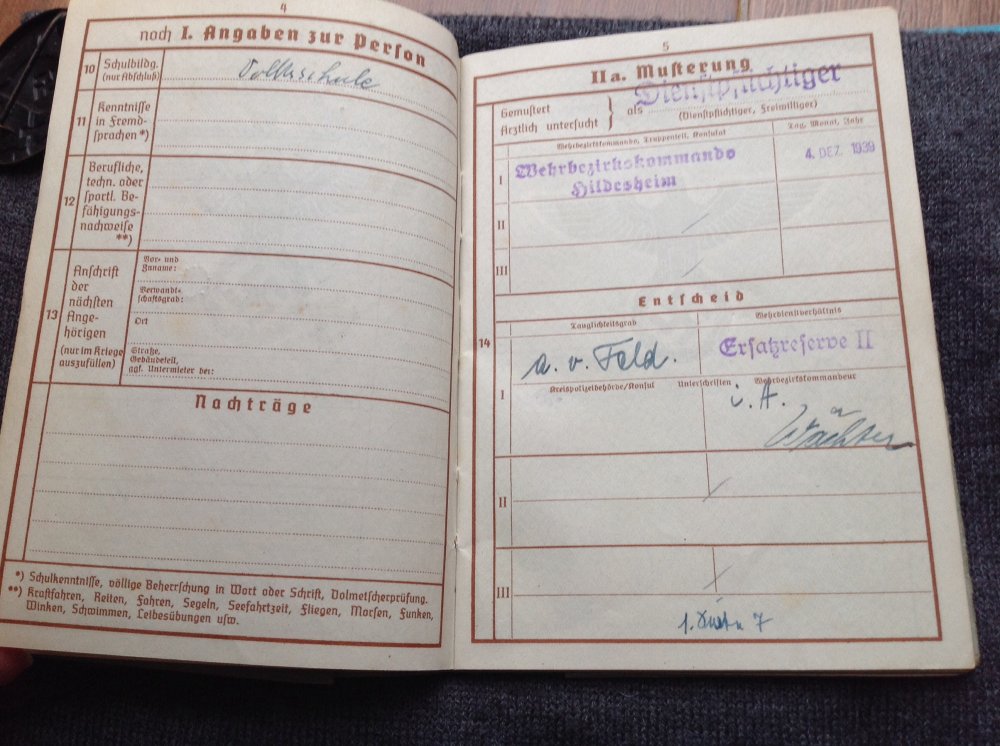 4
noch I. Angaben zur Person
10 Schulbildg. (nur Abschluß)
Volksschule
11 Kenntnisse in Fremdsprachen *)
12 Berufliche, techn. oder sportl. Befähigungsnachweise **)
13 Anschrift der nächsten Angehörigen (nur im Kriege auszufüllen)
Vor- und Zuname:
Verwandtschaftsgrad:
Ort
Straße, Gebäudeteil, ggf. Untermieter bei:
Nachträge
*) Schulkenntnisse, völlige Beherrschung in Wort oder Schrift, Dolmetscherprüfung.
**) Kraftfahren, Reiten, Fahren, Segeln, Seefahrtzeit, Fliegen, Morsen, Funken,
Winken, Schwimmen, Leibesübungen usw.
5
IIa. Musterung
Gemustert
Ärztlich untersucht } als Dienstpflichtiger
(Dienstpflichtiger, Freiwilliger)
Wehrbezirkskommando, Truppenteil, Konsulat
Tag, Monat, Jahr
I Wehrbezirkskommando
Hildesheim
4. DEZ. 1939
II
III
Entscheid
14
Tauglichkeitsgrad
Wehrdienstverhältnis
I a. v. Feld.
Ersatzreserve II
Kreispolizeibehörde/Konsul
Unterschriften
Wehrbezirkskommandeur
i. A.
II
III